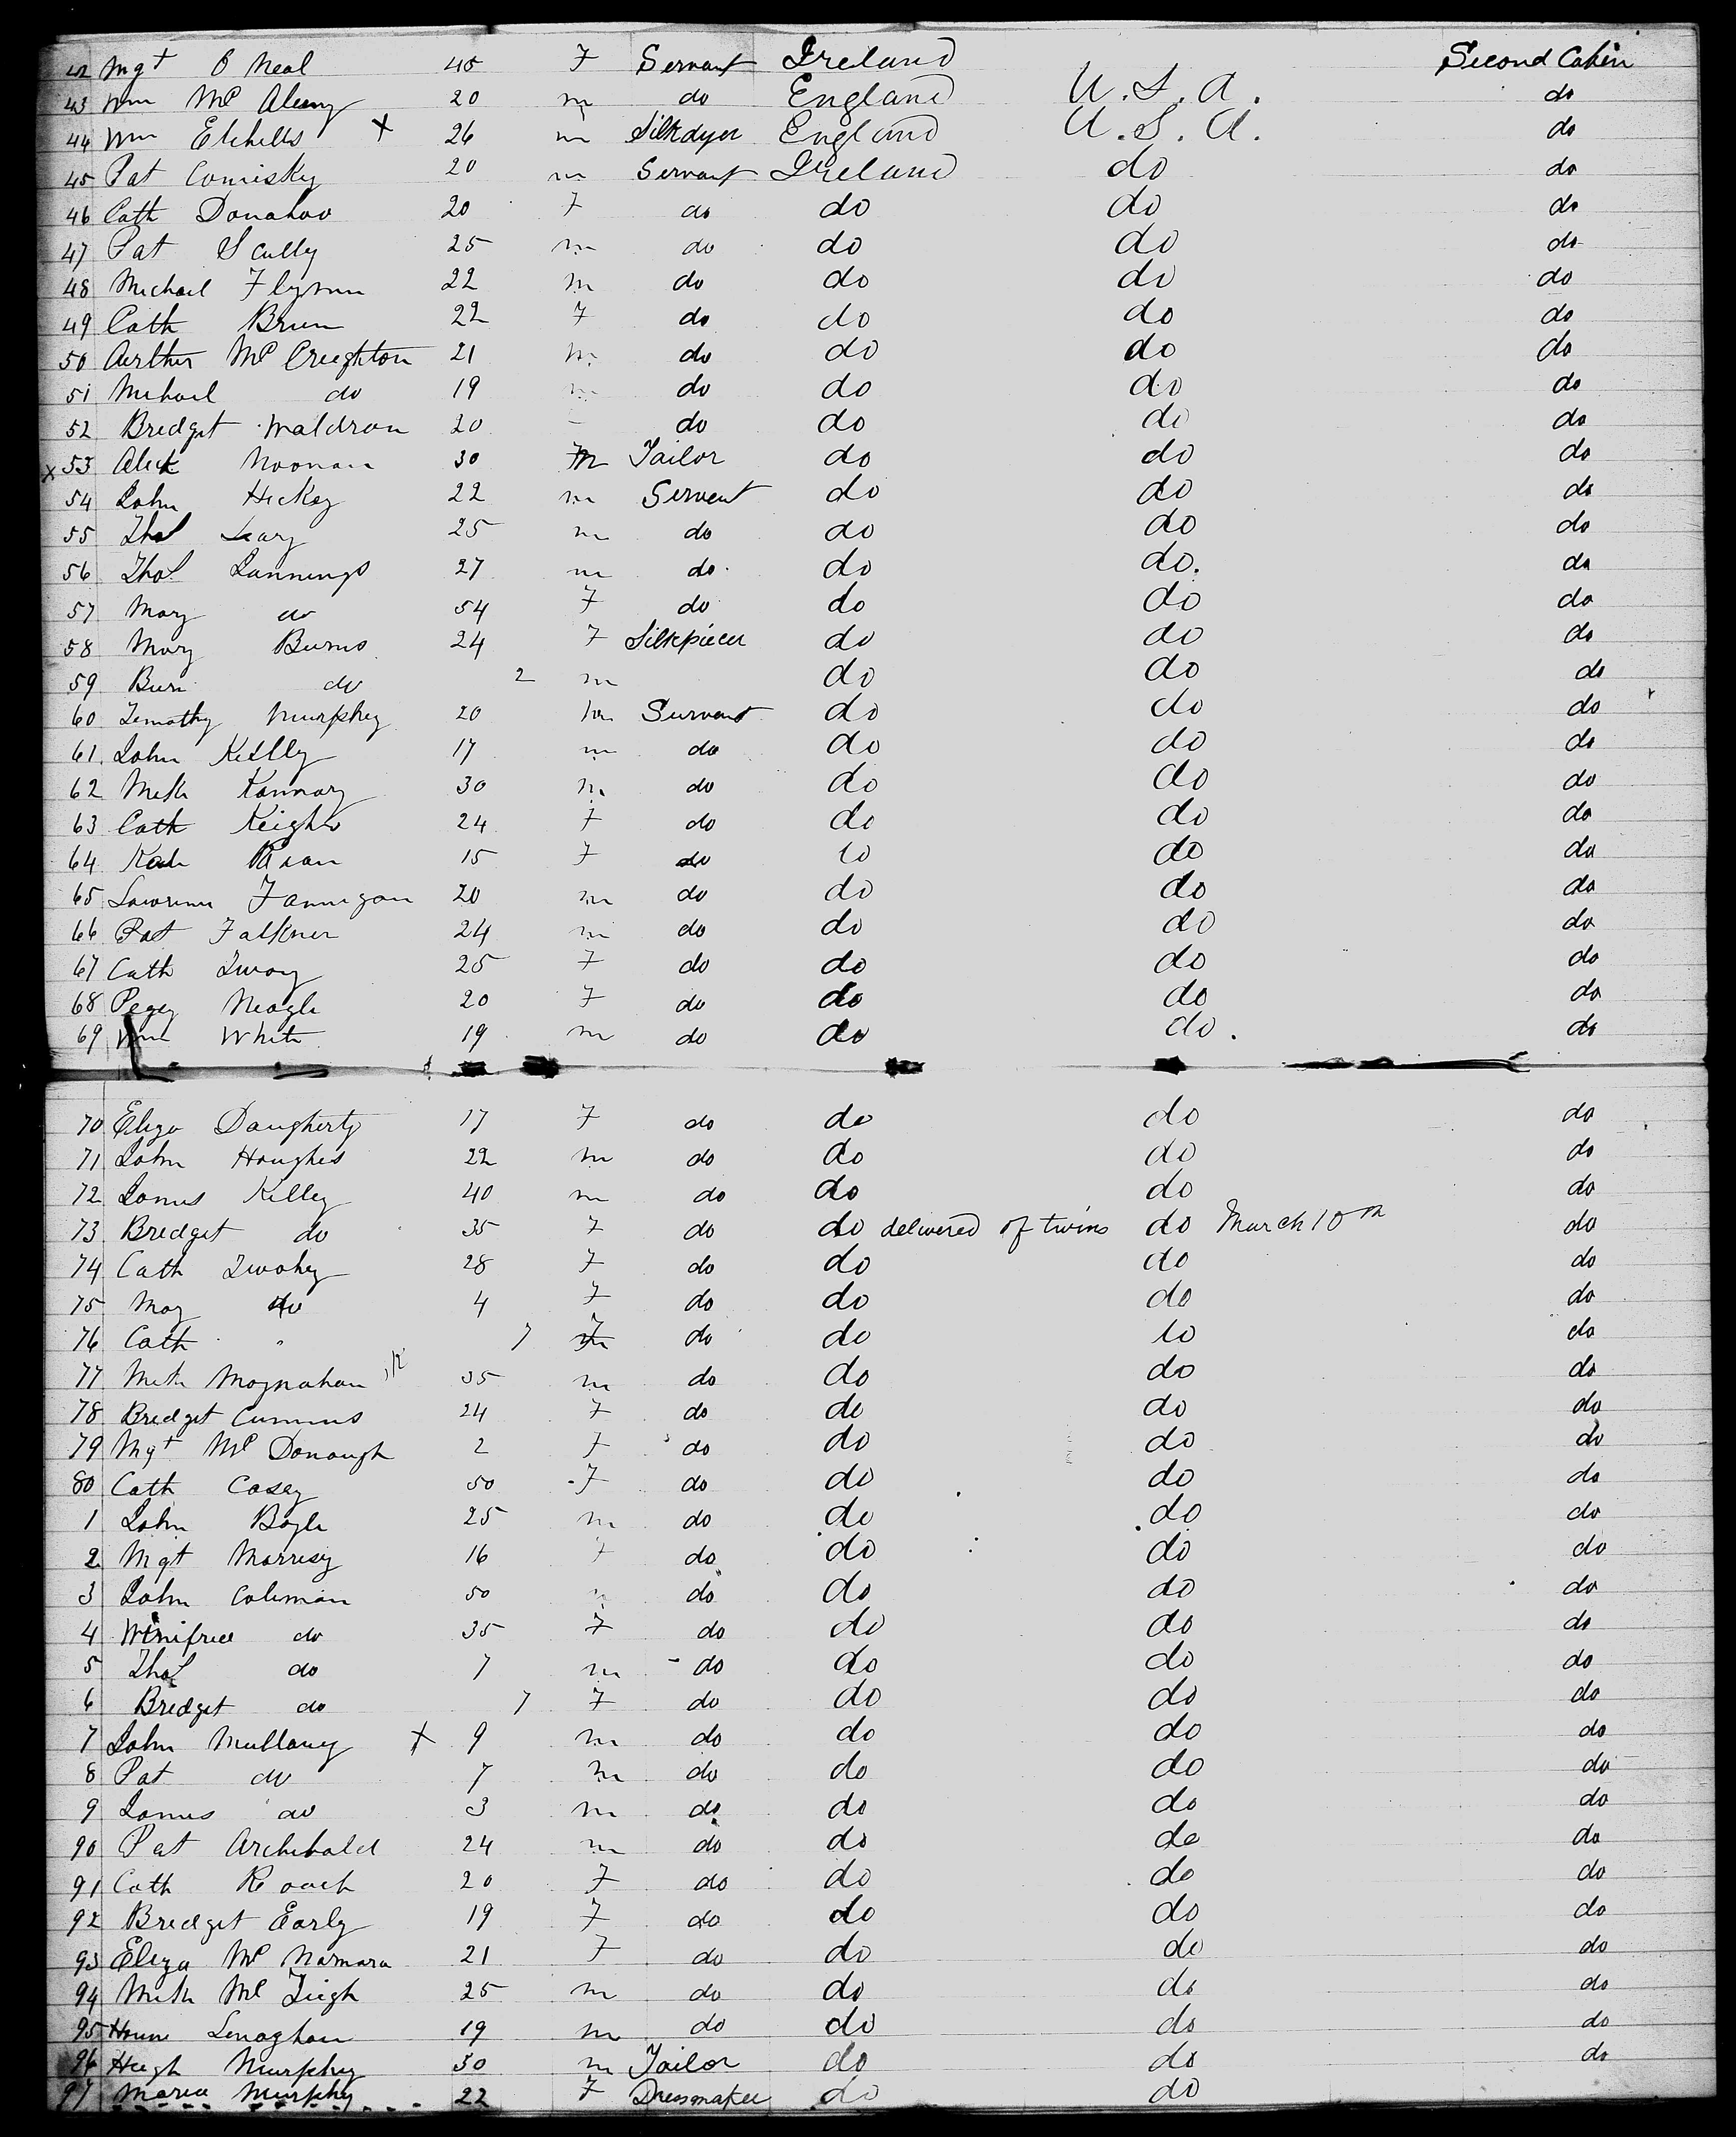 42 Mgt O Neal 45 F Servant Ireland Second Cabin
43 Wm Mc Aleny 20 m do England U.S.A. do
44 Wm Etchells X 26 m Silkdyer England U.S.A. do
45 Pat Comisky 20 m Servant Ireland do do
46 Cath Donahoo 20 F do do do do
47 Pat Scully 25 m do do do do
48 Michael Flynnn 22 m do do do do
49 Cath Brien 22 F do do do do
50 Aurthur Mc Creighton 21 m do do do do
51 Michael do 19 m do do do do
52 Bredget Maldron 20 do do do do
x 53 Alick Noonan 30 m Tailor do do do
54 John Hickey 22 m Servent do do do
55 Thos Leary 25 m do do do do
56 Thos Lannings 27 m do do do. do
57 Mary do 54 F do do do do
58 Mary Burns 24 F Silkpiecer do do do
59 do 2 m do do do
60 Timothy Murphey 20 m Servant do do do
61 John Kelly 17 m do do do do
62 Mick Kannary 30 m do do do do
63 Cath Keigho 24 F do do do do
64 15 F do do do do
65 Lawrence Fannigan 20 m do do do do
66 Pat Falkner 24 m do do do do
67 Cath 25 F do do do do
68 Pegey Neagle 20 F do do do do
69 Wm White 19 m do do do. do
70 Eliza Daugherty 17 F do do do do
71 John Houghes 22 m do do do do
72 James Killey 40 m do do do do
73 Bredget do 35 F do do delivered of twins do March 10th do
74 Cath Twohey 28 F do do do do
75 May do 4 F do do do do
76 Cath " 7 F do do do do
77 Mick Moynahan 35 m do do do do
78 Bredget Cummins 24 F do do do do
79 Mgt Mc Donough 2 F do do do do
80 Cath Casey 50 F do do do do
1 John Boyle 25 m do do do do
2 Mgt Morrisy 16 F do do do do
3 John Coleman 50 m do do do do
4 Winifred do 35 F do do do do
5 Thos do 7 m do do do do
6 Bredget do 7 F do do do do
7 John Mullaney X 9 m do do do do
8 Pat do 7 m do do do do
9 James do 3 m do do do do
90 Pat Archibald 24 m do do do do
91 Cath Roach 20 F do do do do
92 Bredget Early 19 F do do do do
93 Eliza Mc Namara 21 F do do do do
94 Mick Mc Tiegh 25 m do do do do
95 Lenaghan 19 m do do do do
96 Hugh Murphey 30 m Tailor do do do
97 Maria Murphy 22 F Dressmaker do do